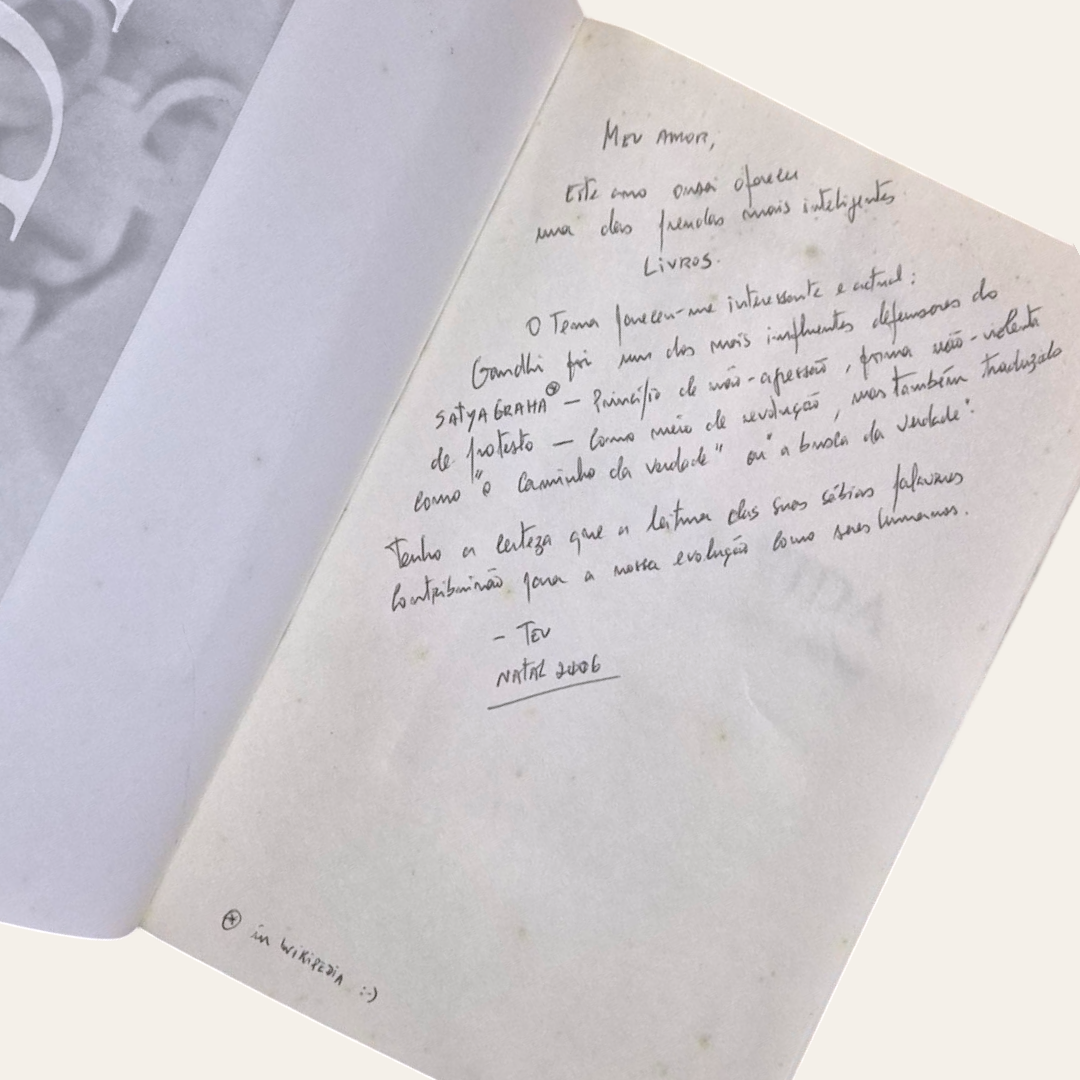 Meu amor,
Este ano ousei oferecer
uma das prendas mais inteligentes
Livros.
O Tema pareceu-me interessante e actual:
Gandhi foi um dos mais influentes defensores do
SATYAGRAHA⊛ – Princípio de não-agressão, forma não-violenta
de protesto – como meio de revolução, mas também traduzido
como "o caminho da verdade" ou "a busca da verdade".
Tenho a certeza que a leitura das suas sábias palavras
contribuirão para a nossa evolução como seres humanos.
– Teu
NATAL 2006
⊛ in WIKIPEDIA :-)